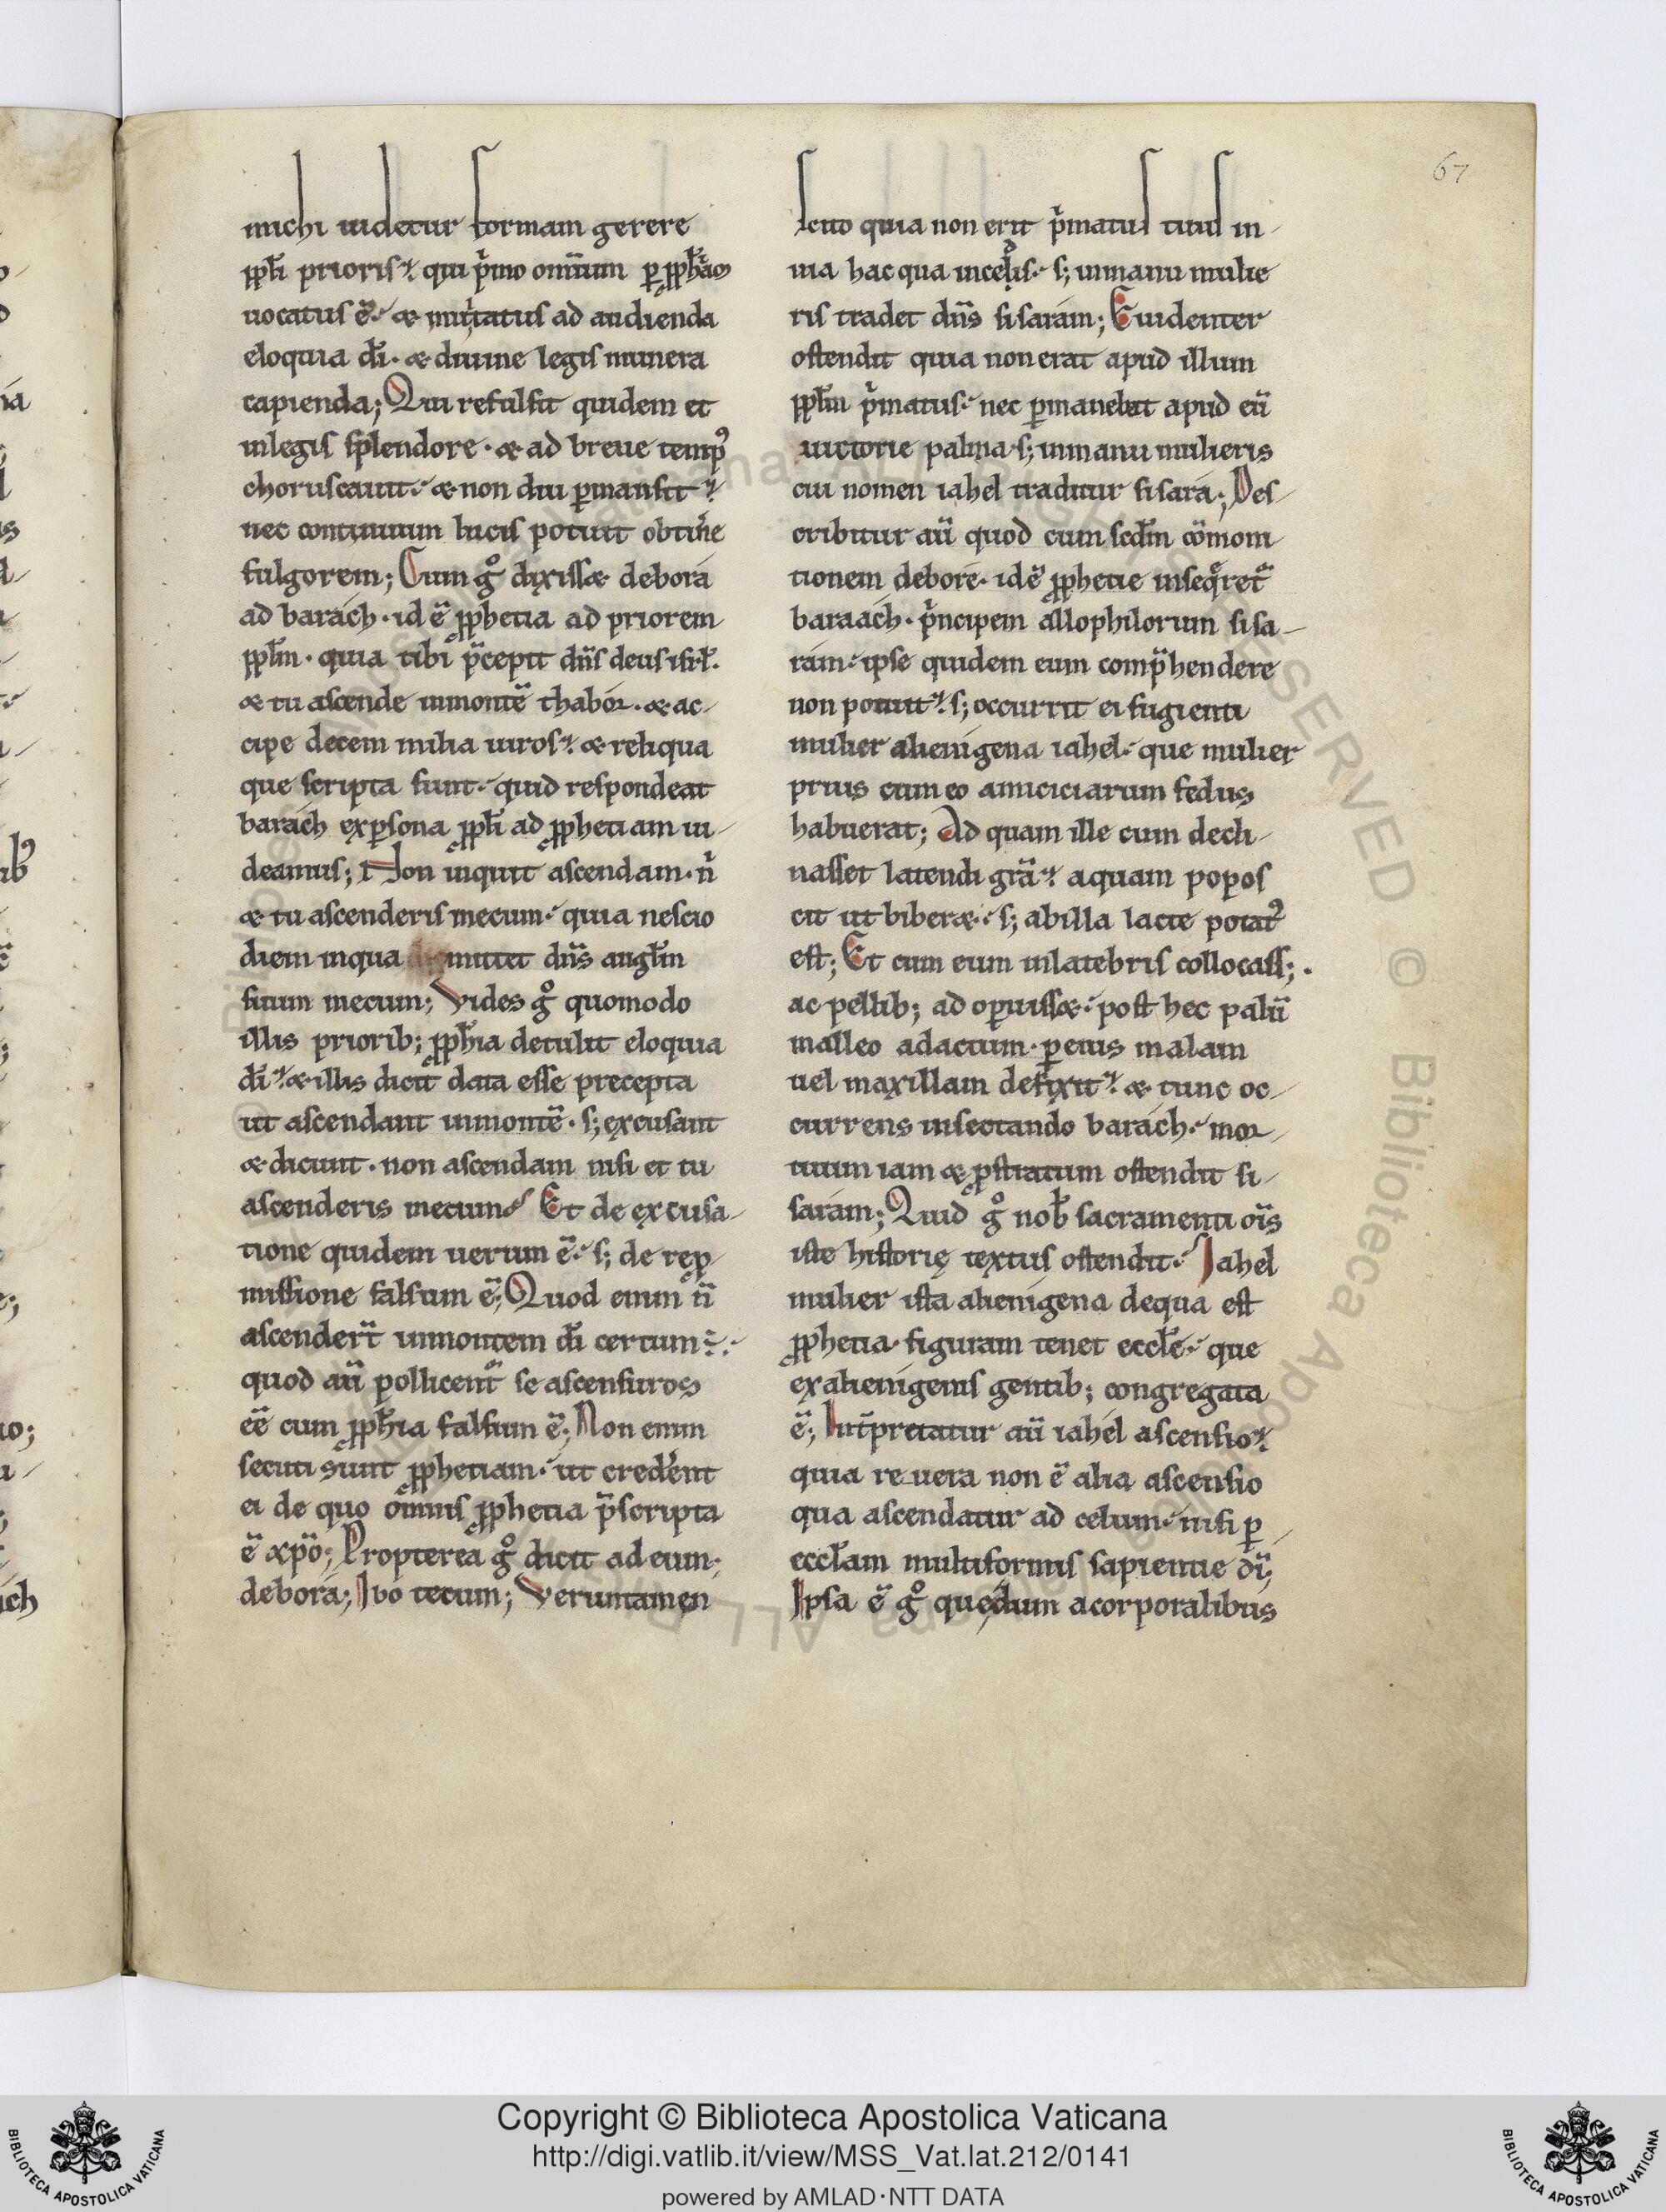 67
michi uidetur formam gerere
pp̄li prioris. qui p̾mo omnium p̱ ꝓphetas
uocatus ē. & inuitatus ad audienda
eloquia dī. & diuine legis munera
capienda; Qui refulsit quidem et
inlegis splendore. & ad breue tempꝰ
choruscauit. & non diu p̱mansit
nec continuum lucis potuit obtine̾
fulgorem; Cum gͦ dixiss& deborá
ad barách. id ē ꝓphetia ad priorem
pp̄lm. quia tibi p̄cepit dn̄s deus isrl̄.
& tu ascende inmontē thabór. & ac-
cipe decem milia uiros. & reliqua
que scripta sunt. quid respondeat
barách exp̱sona pp̄li ad ꝓphetiam ui-
deamus; Non inquit ascendam. n̾
& tu ascenderis mecum. quia nescio
diem inqua mittet dn̄s angl̄m
suum mecum; Vides gͦ quomodo
illis priorib; ꝓph̄ia detulit eloquia
dī. & illis dicit data esse precepta
ut ascendant inmontē. s; excusant
& dicunt. non ascendam nisi et tu
ascenderis mecum. Et de excusa-
tione quidem uerum ē. s; de reꝓ-
missione falsum ē; Quod enim n̄
ascender̄t inmontem dī certum ÷.
quod aū pollicent᷑ se ascensuros
eē cum ꝓph̄ia falsum ē; Non enim
secuti sunt ꝓphetiam. ut crede̾nt
ei de quo omnis ꝓphetia p̄scripta
ē xp̄o; Propterea gͦ dicit ad eum
deborá; Ibo tecum; Veruntamen
scito quia non erit p̾matus tuus in
uia hac qua incedis. s; inmanu mulie
ris tradet dn̄s sisarám; Euidenter
ostendit quia non erat apud illum
pp̄lm p̾matus. nec p̱manebit apud eū
uictorie palma. s; inmanu mulieris
cui nomen iahel traditur sisará; Des-
cribitur aū quod cum scd̄m cōmoni
tionem debore. id ē ꝓphetie inseq̾ret᷑
baraách. p̾ncipem allophilorum sisa-
rám. ipse quidem eum comp̄hendere
non potuit. s; occurrit ei fugienti
mulier alienigena iahel. que mulier
prius cum eo amiciciarum fedus
habuerat; Ad quam ille cum decli-
nasset latendi grā. aquam popos
cit ut biber&. s; abilla lacte potatꝰ
est; Et cum eum inlatebris collocass;.
ac pellib; ad op̱uiss&. post hec palū
malleo adactum. p̱ eius malam
uel maxillam defixit. & tunc oc-
currens insectando barách. mor-
tuum iam & ꝓstratum ostendit si-
sarám; Quid gͦ nob̄ sacramenti oīs
iste historię textus ostendit. Iahel
mulier ista alienígena dequa est
ꝓphetia. figuram tenet eccl̄e. que
exalienígenis gentib; congregata
ē; Int̄pretatur aū iahél ascensio.
quia re uera non ē alia ascensio
qua ascendatur ad celum. nisi p̱
eccl̄am multiformis sapientie dī;
Ipsa ē gͦ quędum acorporalibus
Copyright © Biblioteca Apostolica Vaticana
http://digi.vatlib.it/view/MSS_Vat.lat.212/0141
powered by AMLAD·NTT DATA
BIBLIOTECA APOSTOLICA VATICANA
BIBLIOTECA APOSTOLICA VATICANA